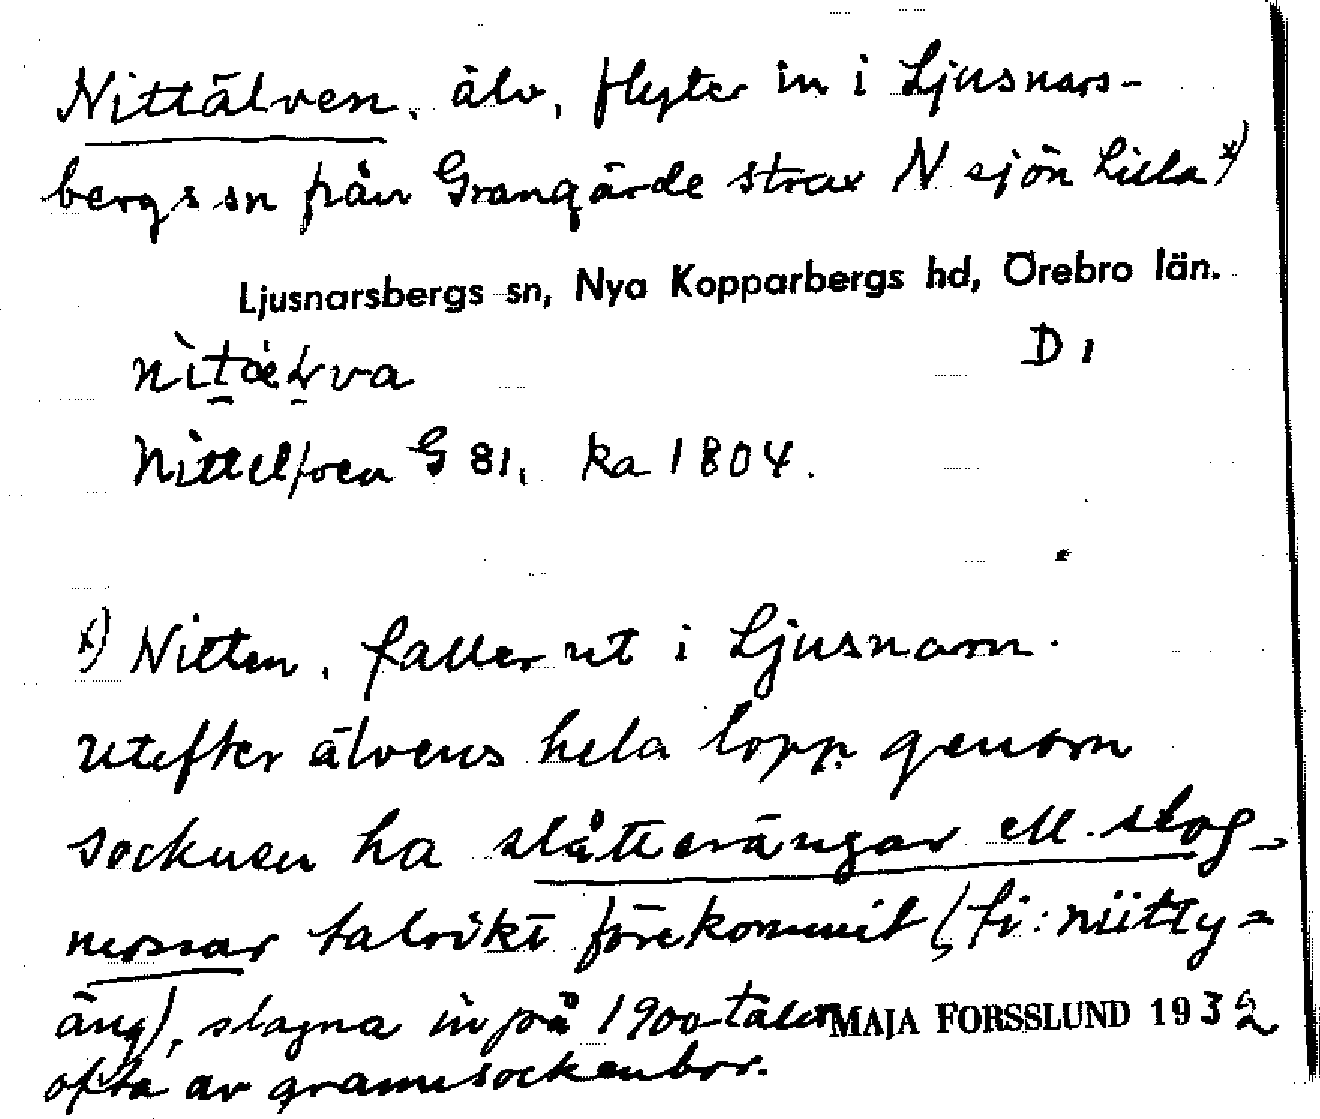 Nittälven, älv, flyter in i Ljusnars-
bergs sn från Grangärde strax N sjön Lilla x)
Ljusnarsbergs sn, Nya Kopparbergs hd, Örebro län.
D 1
Nittelfven G 81, ka 1804.
x) Nitten, faller ut i Ljusnaren.
utefter älvens hela lopp genom
socknen ha slåtterängar ell. slog-
mossar talrikt förekommit (fi: niitty =
äng), slagna in på 1900-talet
MAJA FORSSLUND 1932
ofta av grannsockenbor.